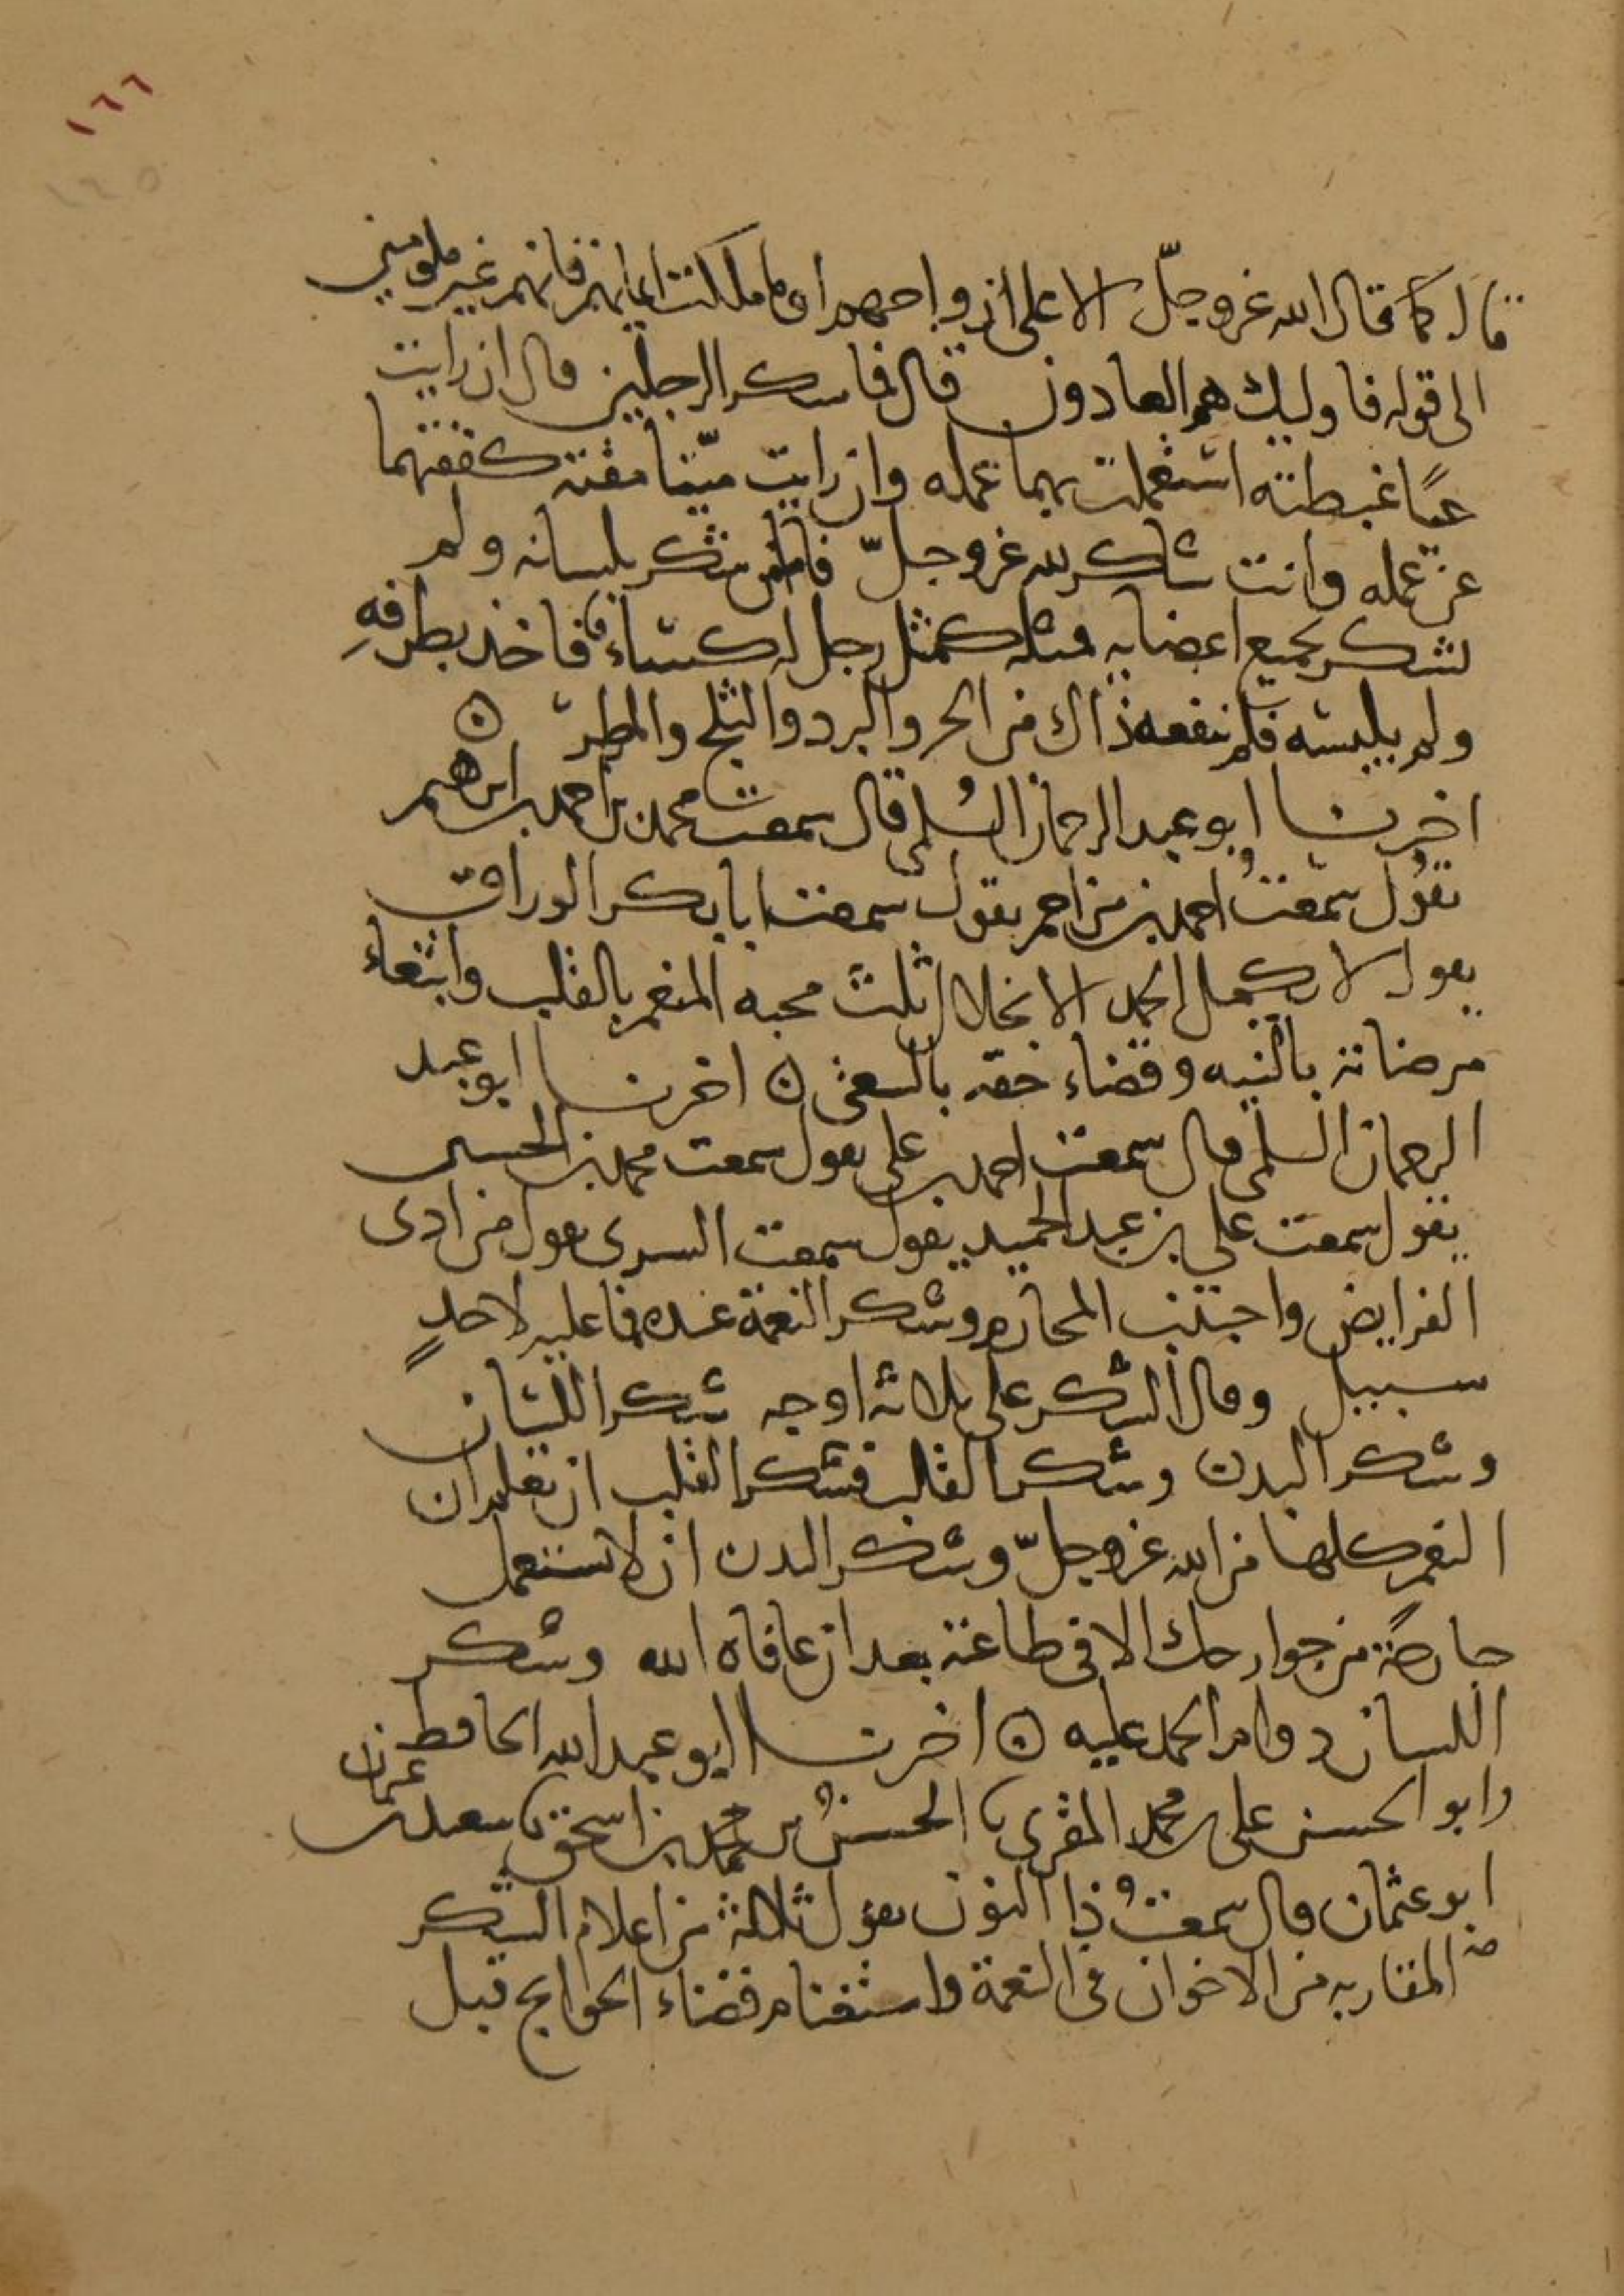 ١٦٦
١٦٥
قال كما قال الله عز وجلّ الا على ازواجهم او ما ملكت ايمانهم فانهم غير ملومين
الى قوله فاوليك هم العادون قال فما شكر الرجلين قال ان رايت
حيًا غبطته استعملت بهما عمله وان رايت ميّتا مقته كففتهما
عن عمله وانت شاكر لله عز وجلّ فاما من شكر بلسانه ولم
يشكر بجميع اعضايه فمثله كمثل رجل له كساء فاخذ بطرفهِ
ولم يلبسه فلم ينفعه ذاك من الحر والبرد والثلج والمطر ۞
اخبرنا ابو عبد الرحمان السُلمي قال سمعت محمد بن احمد بن ابراهيم
يقول سمعتُ احمد بن مزاحم يقول سمعت ابا بكر الوراق
يقول لا يكمل الحمد الا بخلال ثلث محبه المنعم بالقلب وابتغاء
مرضاته بالنيه وقضاء حقه بالسعي ۞ اخبرنا ابو عبد
الرحمان السلمي قال سمعت احمد بن علي يقول سمعت محمد بن الحسين
يقول سمعت علي بن عبد الحميد يقول سمعت السري يقول من ادى
الفرايض واجتنب المحارم وشكر النعمة عنده فما عليه لاحدٍ
سبيل وقال الشكر على ثلاثه اوجه شكر اللسان
وشكر البدن وشكر القلب فشكر القلب ان تعلم ان
النعم كلها من الله عز وجلّ وشكر البدن ان لا تستعمل
جارحةً من جوارحك الا في طاعته بعد ان عافاه الله وشكر
اللسان دوام الحمد عليه ۞ اخبرنا ابو عبد الله الحافظ
وابو الحسن علي بن محمد المقري نا الحسنُ بن محمد بن اسحق نا سعيد بن عثمان
ابو عثمان قال سمعتُ ذا النون يقول ثلاثة من اعلام الشكر
المقاربه من الاخوان في النعمة واستغنام قضاء الحوايج قبل